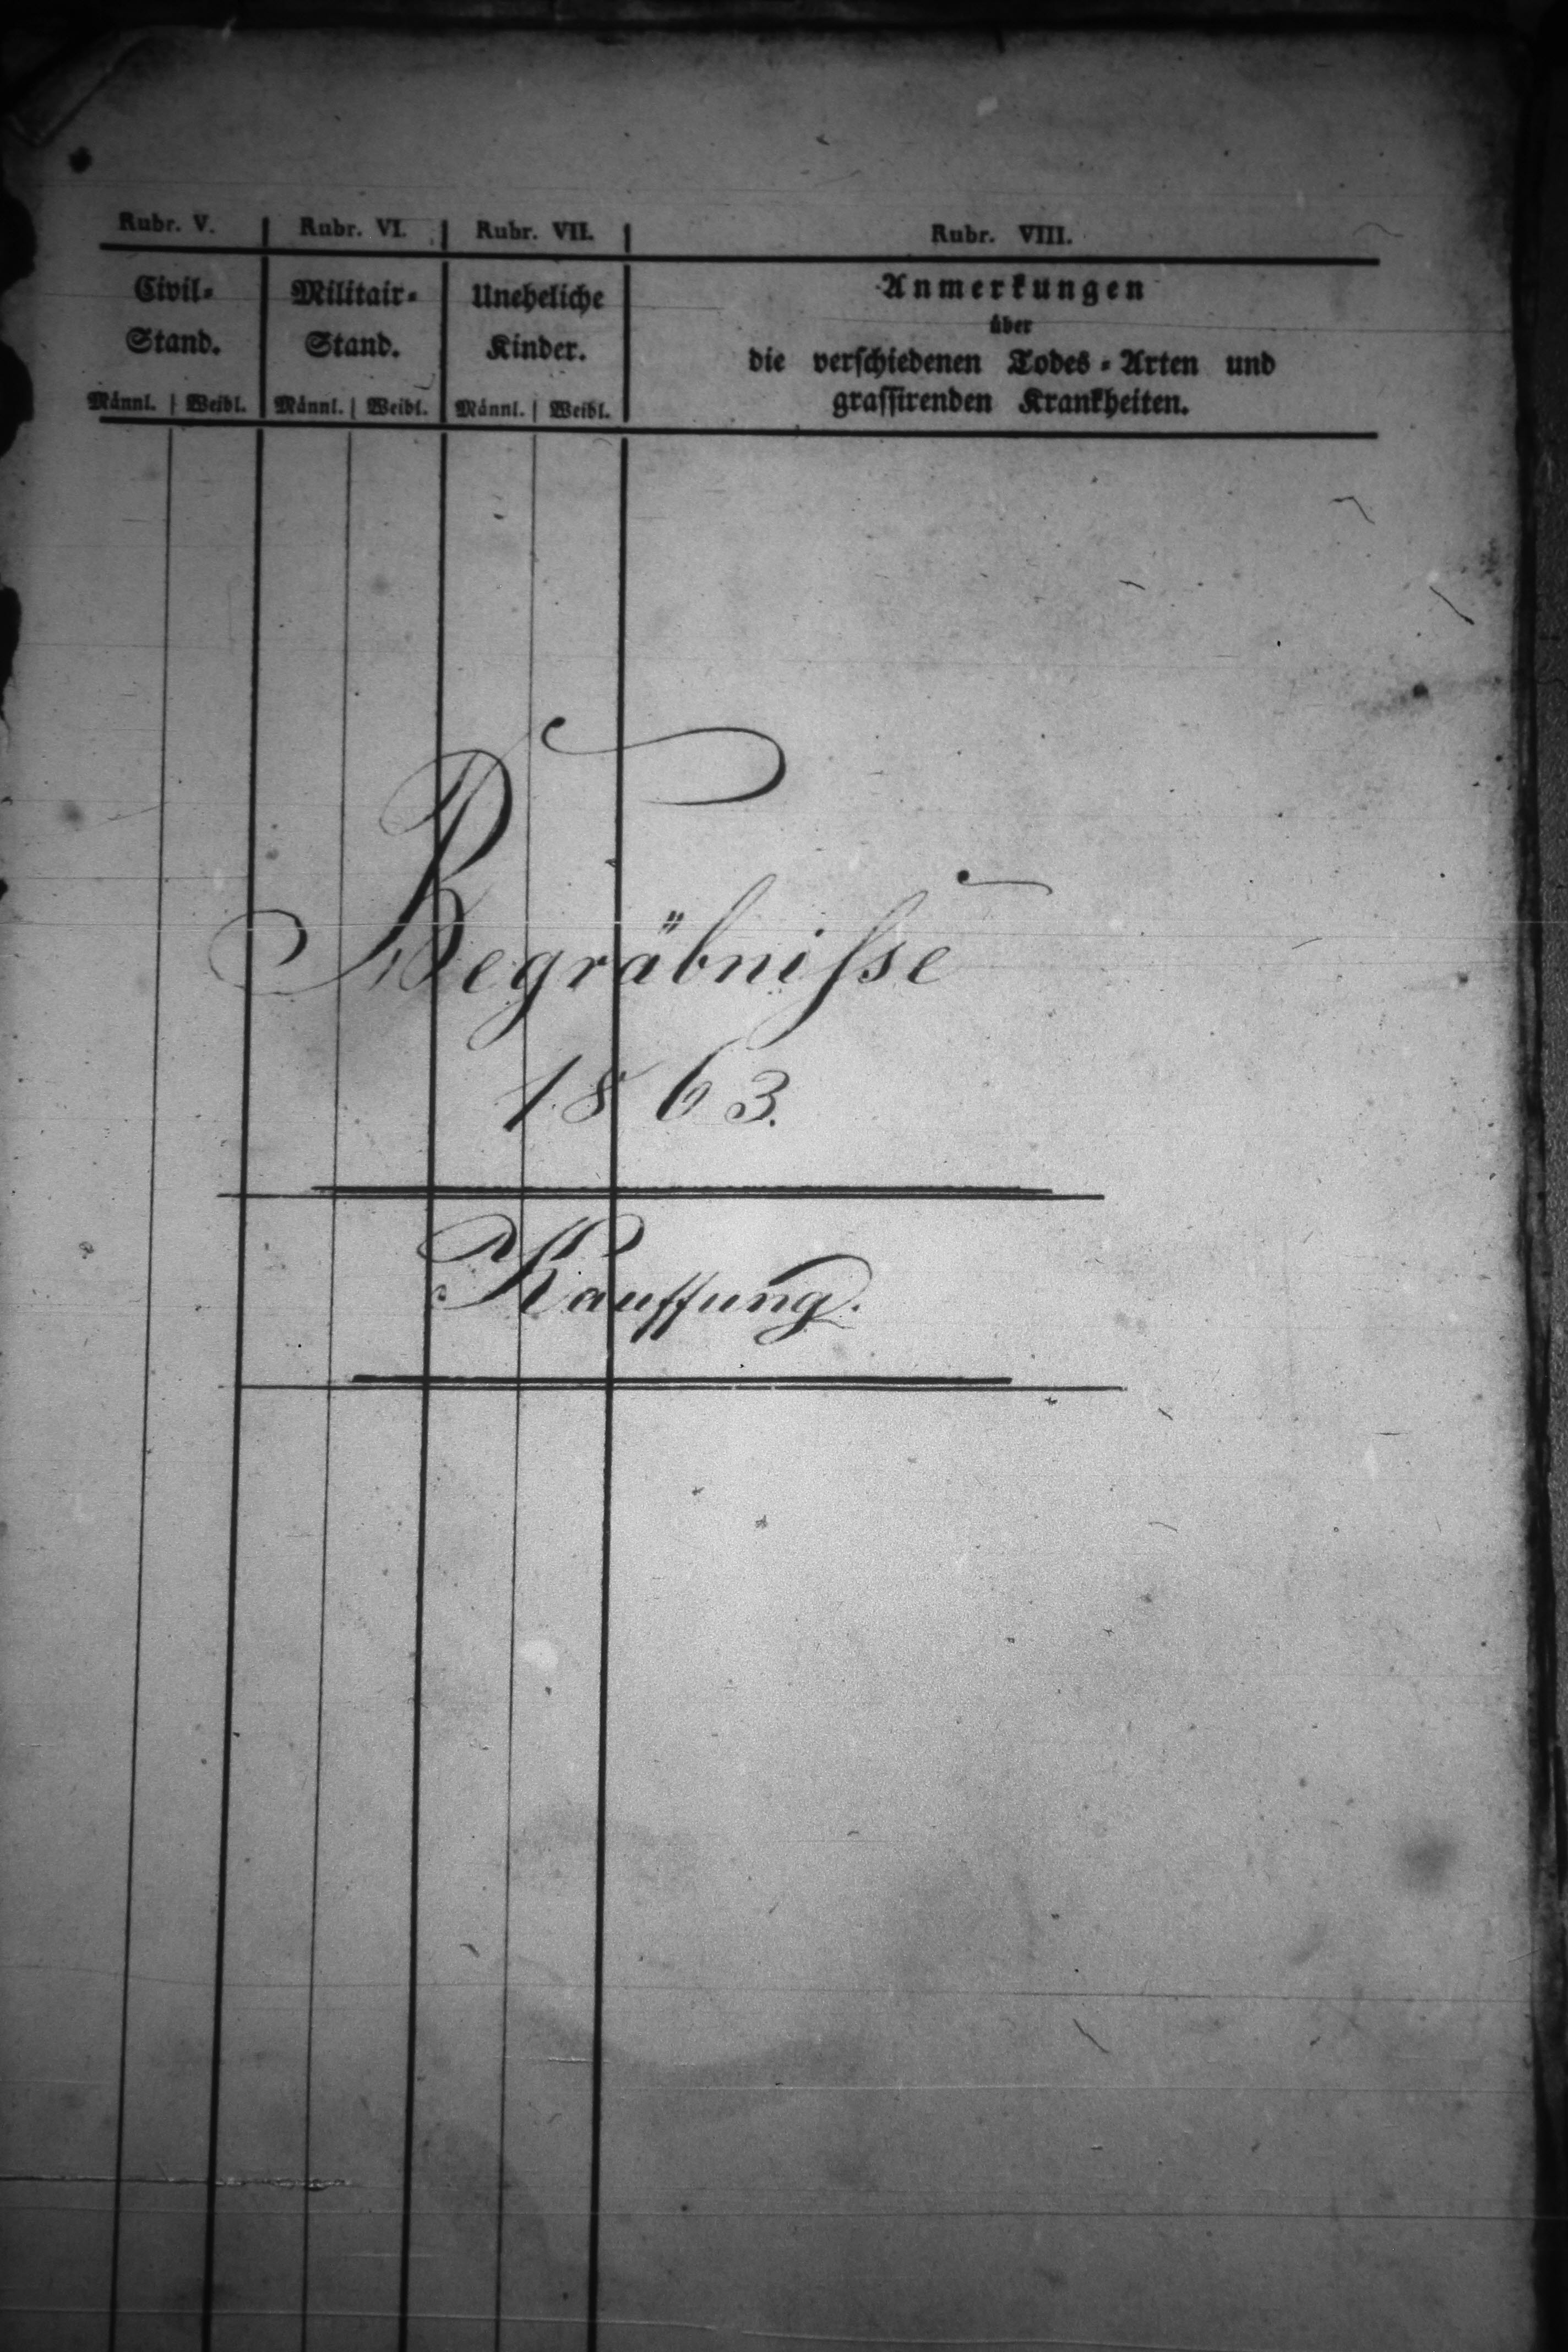 Rubr. V. Rubr. VI. Rubr. VII. Rubr. VIII.
Civil- Militair- Uneheliche Anmerkungen
über
Stand. Stand. Kinder. die verschiedenen Todes-Arten und
Männl. Weibl. Männl. Weibl. Männl. Weibl. grassirenden Krankheiten.
Begräbnisse
1863.
Kauffung.